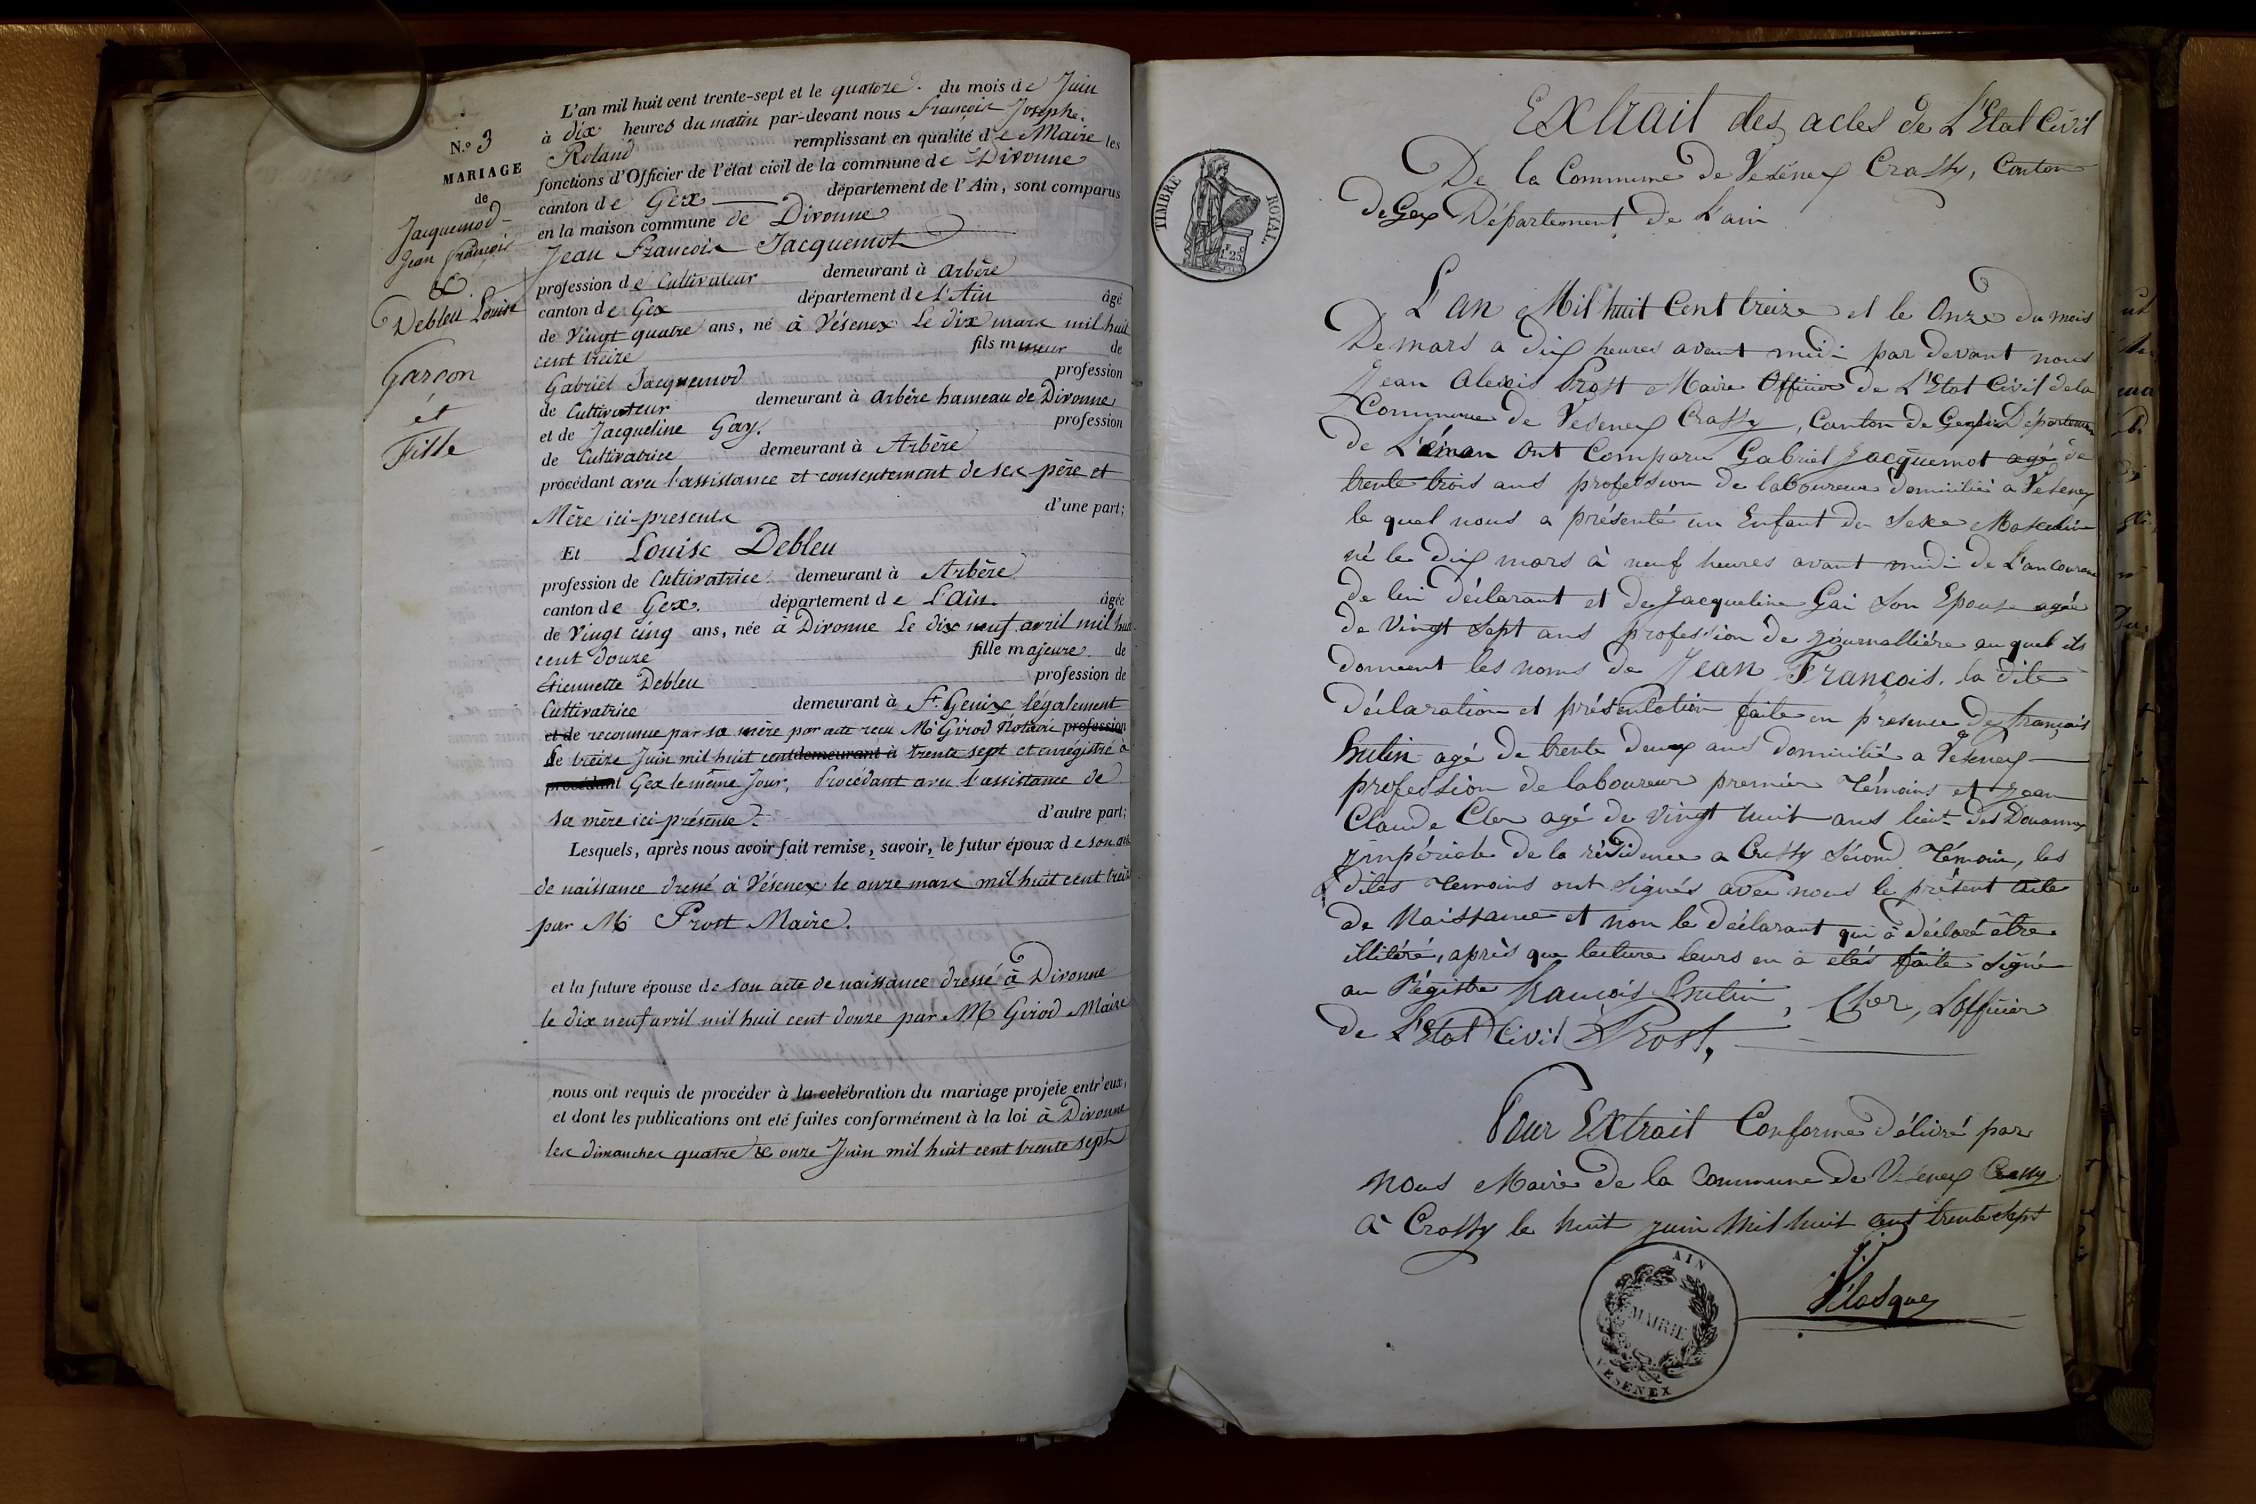 N.º 3
MARIAGE
de
Jacquemod
Jean François
&
Debleu Louise
Garçon
et
Fille
L'an mil huit cent trente-sept et le quatorze du mois de Juin
à dix heures du matin par-devant nous François Joseph
Roland remplissant en qualité de Maire les
fonctions d'Officier de l'état civil de la commune de Divonne
canton de Gex département de l'Ain, sont comparus
en la maison commune de Divonne
Jean François Jacquemot
profession de Cultivateur demeurant à Arbère
canton de Gex département de l'Ain âgé
de Vingt quatre ans, né à Vésenex Le dix mars mil huit
cent treize fils mineur de
Gabriel Jacquemod profession
de Cultivateur demeurant à Arbère hameau de Divonne
et de Jacqueline Gay. profession
de Cultivatrice demeurant à Arbère
procédant avec l'assistance et consentement de ses père et
Mère ici-presents d'une part;
Et Louise Debleu
profession de Cultivatrice demeurant à Arbère
canton de Gex. département de L'Ain. âgée
de Vingt cinq ans, née à Divonne Le dix neuf avril mil huit
cent douze fille majeure de
Etiennette Debleu profession de
Cultivatrice demeurant à St Genix légalement
et de reconnue par sa mère par acte reçu Me Girod Notaire profession
Le treize Juin mil huit cent demeurant à trente sept et enrégistré à
procédant Gex le même Jour, Procédant avec l'assistance de
sa mère ici-présente. d'autre part;
Lesquels, après nous avoir fait remise, savoir, le futur époux de son acte
de naissance dressé à Vésenex le onze mars mil huit cent treize
par Mr Prost Maire.
et la future épouse de son acte de naissance dressé à Divonne
le dix neuf avril mil huit cent douze par Mr Girod Maire
nous ont requis de procéder à la célébration du mariage projeté entr'eux,
et dont les publications ont été faites conformément à la loi à Divonne
les dimanches quatre & onze Juin mil huit cent trente sept
TIMBRE ROYAL.
Extrait des actes de L'Etat Civil
De la Commune de Vesenex Crassy, Canton
de Gex Département de L'ain
L'an Mil huit Cent treize et le Onze du mois
De mars a dix heures avant midi par devant nous
Jean Alexis Prost Maire Officier de L'Etat Civil de la
Commune de Vesenex Crassy, Canton de Gex Département
de L'éman Ont Comparu Gabriel Jacquemot agé de
trente trois ans profession de laboureur domicilié a Vesenex
le quel nous a présenté un Enfant du Sexe Masculin
né le dix mars à neuf heures avant midi de L'an Courant
de lui déclarant et de Jacqueline Gai Son Epouse agée
de Vingt Sept ans profession de journallière auquel ils
donnent les noms de Jean François. la dite
Déclaration et présentation faite en présence de françois
hutin agé de trente deux ans domicilié a Vesenex
profession de laboureur premier témoins et Jean
Claude Cler agé de Vingt huit ans lieut. des Douannes
impériale de la résidence a Crassy Sécond témoin, les
dites temoins ont Signés avec nous le présent acte
de Naissance et non le déclarant qui à déclaré être
illitéré, après que lecture leurs en à étés faite Signé
au Régistre François hutin, Cler, L'officier
de L'Etat Civil Prost,
Pour Extrait Conforme délivré par
nous Maire de la Commune de Vesenex Crassy
à Crassy le huit juin Mil huit cent trente Sept
AIN
MAIRIE
VESENEX